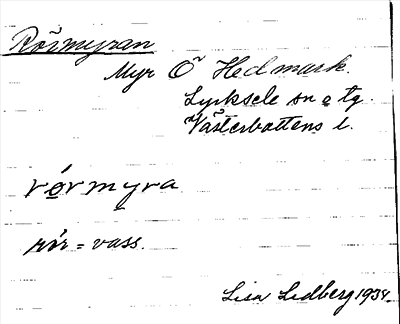 Rörmyran
Myr Ö Hedmark.
Lycksele sn o tg.
Västerbottens l.
rörmyra
rör = vass.
Lisa Lidberg 1934.